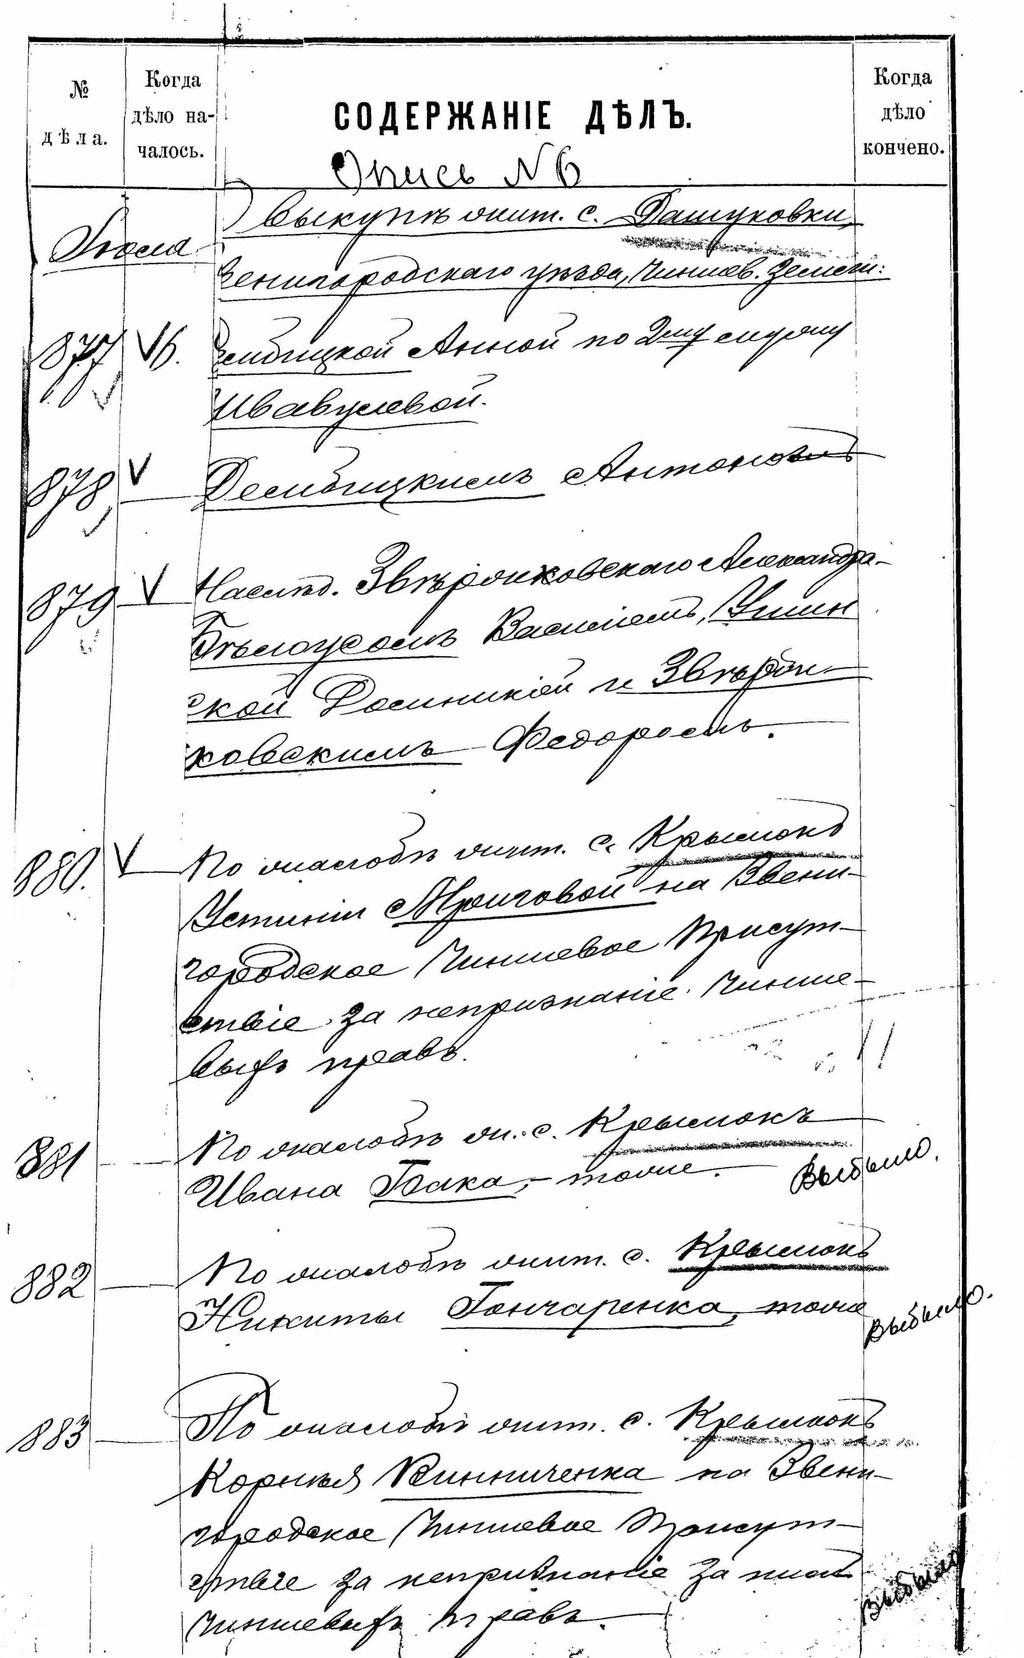 № дѣла.
Когда дѣло на-чалось.
СОДЕРЖАНІЕ ДѢЛЪ.
Когда дѣло кончено.
Опись N 6
О выкупѣ жит. с. Дашуковки,
Звенигородскаго уѣзда, чиншев. земель:
877 V 6. Анной по 2му мужу
878 V Антономъ
879 V Наслѣд. Звѣронховскаго Александра-
Бѣлоусомъ Василіемъ,
ской и Звѣрон-
ховскимъ Федоромъ.
880. V По жалобѣ жит. с. Крымокъ
Устиніи на Звени-
городское Чиншевое Присут-
ствіе за непризнаніе чинше-
выхъ правъ.
881 По жалобѣ ж. с. Крымокъ
Ивана тоже. Выбыло.
882 По жалобѣ жит. с. Крымокъ
Никиты Гончаренка, тоже Выбыло.
883 По жалобѣ жит. с. Крымокъ
Корнѣя Винниченка на Звени-
городское Чиншевое Присут-
ствіе за непризнаніе за нимъ
чиншевыхъ правъ. Выбыло